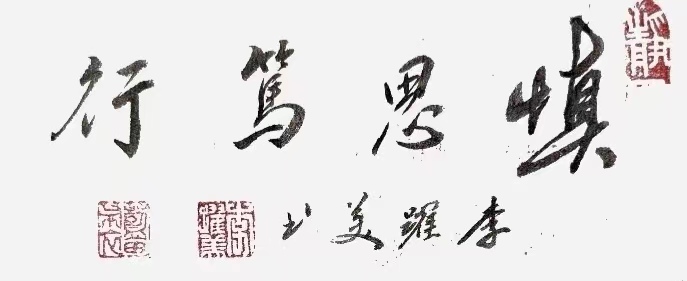 慎思篤行
李躍美书